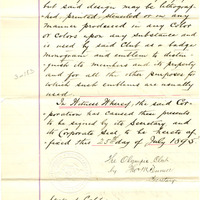 but said design may be lithograph
ed printed stenciled or in any
manner produced in any Color
or Colors upon any substance and
is used by said Club as a badge
monogram and emblem to distin-
guish its members and its property
and for all the other purposes for
which such emblems are usually
used.
In Witness Whereof, the said Cor-
poration has caused these presents
to be signed by its Secretary and
its Corporate Seal to be hereto af-
fixed this 25th day of July 1895
The Olympic Club
by
Secretary